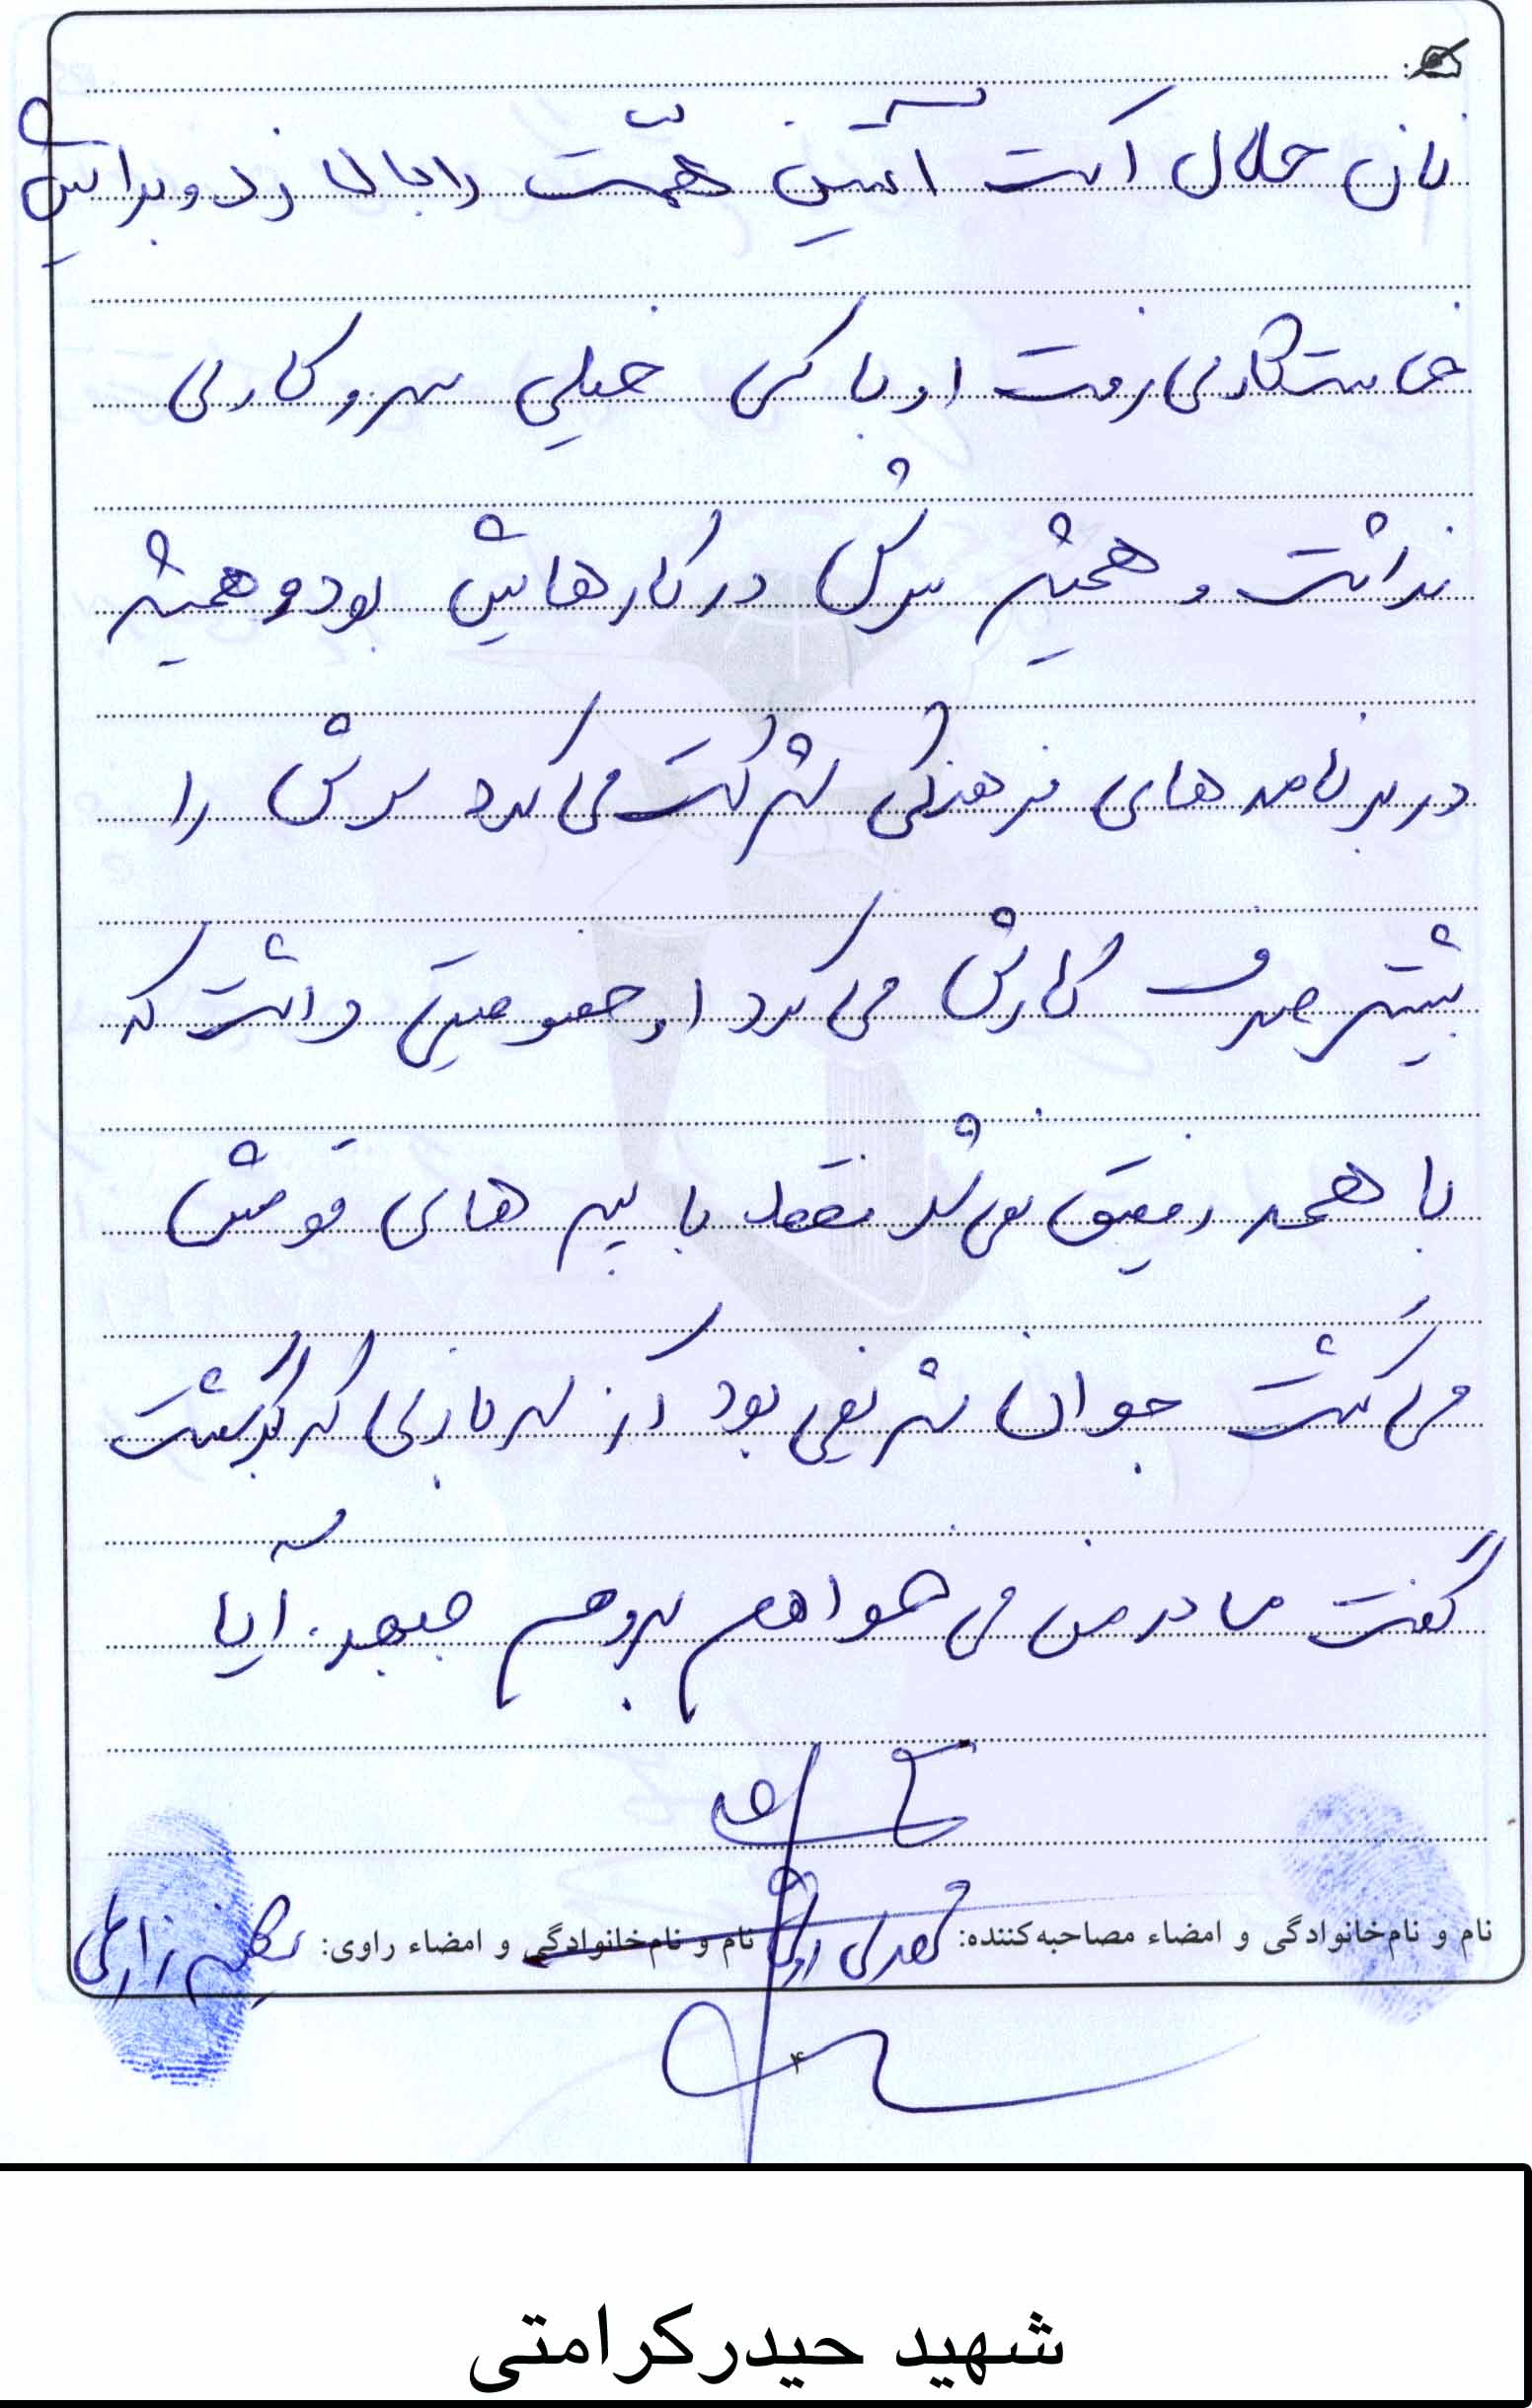 نان حلال است آستین همّت را بالا زد و برایش
خاستگاری رفت او با کسی خیلی سر و کاری
نداشت و همیشه سرش در کارهایش بود و همیشه
در برنامه های فرهنگی شرکت می کرد سرش را
بیشتر صرف کارش می کرد او خصوصیتی داشت که
با همه رفیق نمی شد فقط با بچه های قومش
می گشت جوان شریفی بود از سربازی که برگشت
گفت مادر من می خواهم بروم جبهه. آیا
نام و نام‌خانوادگی و امضاء مصاحبه‌کننده: نام و نام‌خانوادگی و امضاء راوی: سکینه زارعی
۴
شهید حیدر کرامتی